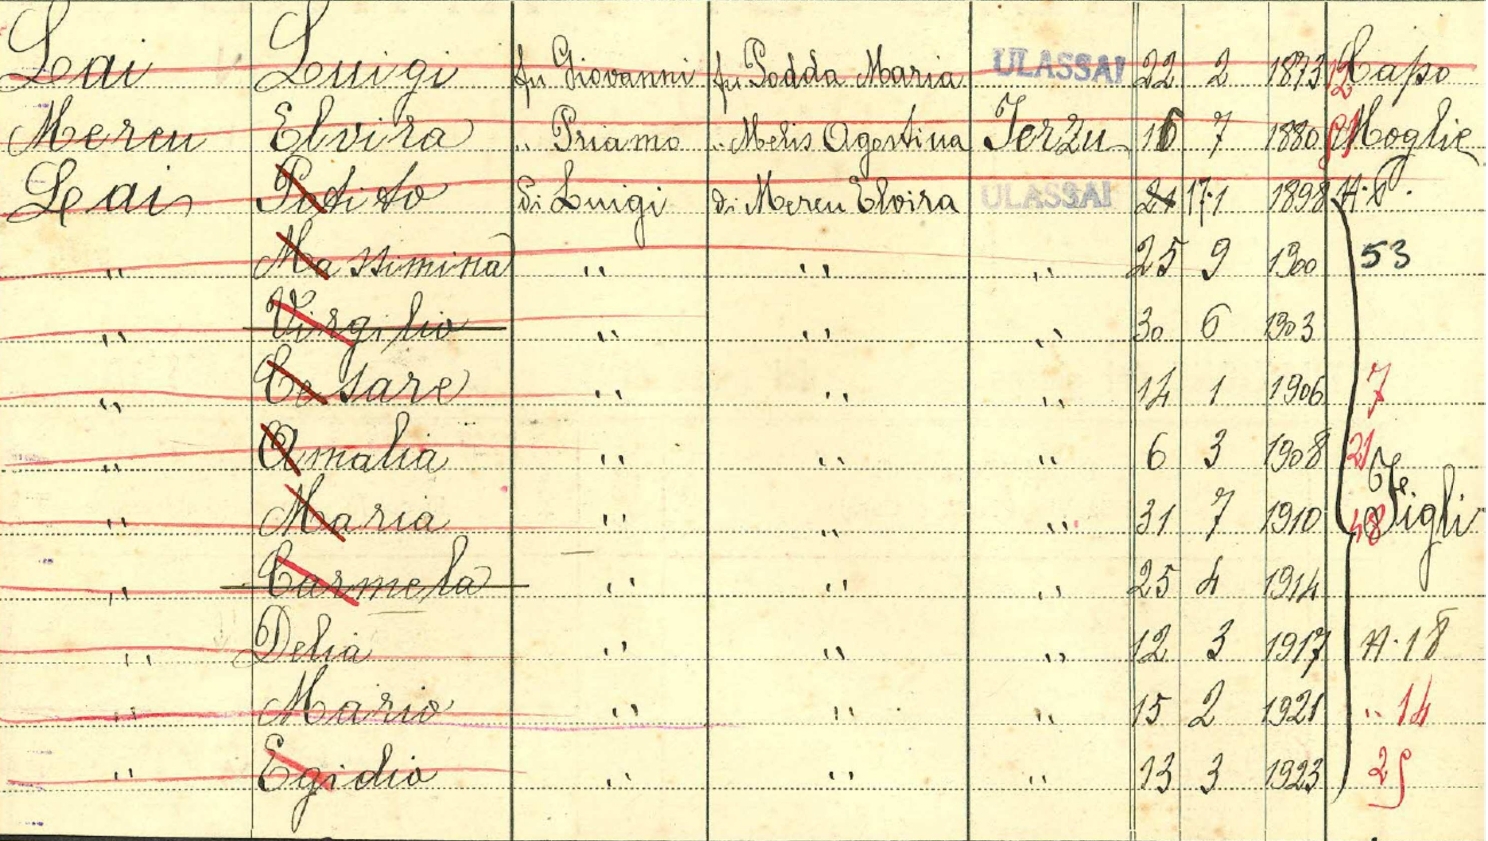 Lai Luigi fu Giovanni fu Podda Maria ULASSAI 22 2 1873 Capo
Mereu Elvira " Priamo " Melis Agostina Jerzu 16 7 1880 Moglie
Lai di Luigi di Mereu Elvira ULASSAI 21 17.1 1898
" Massimina " " " 25 9 1900 53
" Virgilio " " " 30 6 1903
" Cesare " " " 14 1 1906 7
" Amalia " " " 6 3 1908 21
" Maria " " " 31 7 1910 48 Figli
" Carmela " " " 25 4 1914
" Delia " " " 12 3 1917 A.18
" Mario " " " 15 2 1921 " 14
" Egidio " " " 13 3 1923 25